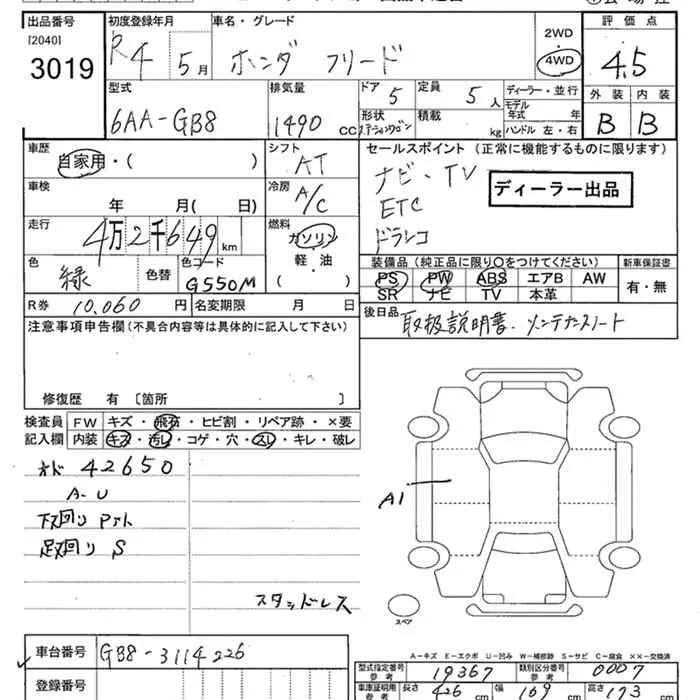 出品番号 初度登録年月 車名・グレード 評価点
[2040] R4 5月 ホンダ フリード 2WD 4WD 4.5
3019
型式 排気量 ドア 定員 ディーラー・並行 外装 内装
6AA-GB8 1490 CC 5 5人 モデル年式 年式 B B
形状 ステーションワゴン 積載 kg ハンドル 左・右
車歴 シフト セールスポイント (正常に機能するものに限ります)
自家用・( ) AT ナビ、TV
車検 冷房 ETC ディーラー出品
年 月( 日) A/C ドラレコ
走行 燃料
4万2千649km ガソリン
軽・油
( )
装備品(純正品に限り○をつけてください) 新車保証書
色 色替 色コード PS PW ABS エアB AW 有・無
緑 G550M SR ナビ TV 本革
R券 10,060円 名変期限 月 日 後日品 取扱説明書、メンテナンスノート
注意事項申告欄(不具合内容等は具体的に記入して下さい)
修復歴 有 〔箇所 〕
検査員 FW キズ・飛石・ヒビ割・リペア跡・×要
記入欄 内装 キズ・汚レ・コゲ・穴・スレ・キレ・破レ
オド 42650
A-U
下回り Pアト
足回り S
スタッドレス
A1
スペア
A-キズ E-エクボ U-凹み W-補修跡 S-サビ C-腐食 ××-交換済
車台番号 GB8-3114226 型式指定番号 参考 19367 類別区分番号 参考 0007
登録番号 車庫証明用 参考 長さ 426cm 幅 169cm 高さ 173cm